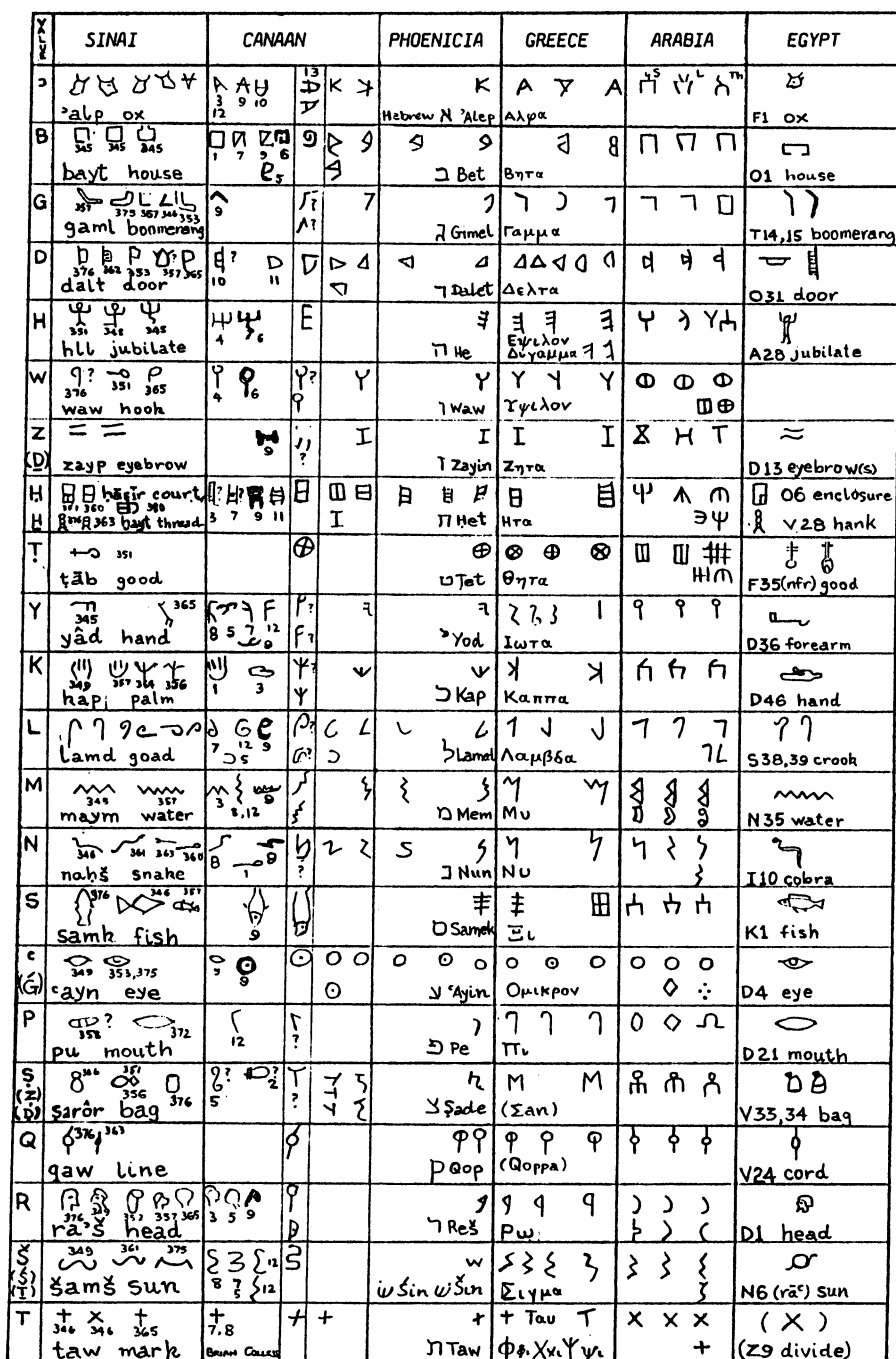 VALUE SINAI CANAAN PHOENICIA GREECE ARABIA EGYPT
ʾ 13 K K A A S L Th
3 9 10
12
ʾalp ox Hebrew א ʾAlep Αλφα F1 ox
B 345 345 345 1 7 9 6
5
bayt house ב Bet Βητα O1 house
G 357 375 357 346 353 9 ? ?
gaml boomerang ג Gimel Γαμμα T14,15 boomerang
D 376 362 353 357? 365 ? 10 11
dalt door ד Dalet Δελτα O31 door
H 351 345 4 6
hll jubilate ה He Εψιλον
Διγαμμα A28 jubilate
W ? 376 351 365 4 6 ?
waw hook ו Waw Υψιλον
Z
(Ḏ) 9 ?
zayp eyebrow ז Zayin Ζητα D13 eyebrow(s)
Ḥ ḥaṣir court O6 enclosure
Ḫ 363 ḫayt thread 3 7 9 11 ח Het Ητα V28 hank
Ṭ 351
ṭāb good ט Ṭet Θητα F35(nfr) good
Y 345 365 8 5 7 12 9 ? ?
yâd hand י Yod Ιωτα D36 forearm
K 349 357 364 356 1 3 ?
kapi palm כ Kap Καππα D46 hand
L 7 12 9 5 ? ?
lamd goad ל Lamed Λαμβδα S38,39 crook
M 349 357 3 8,12 9
maym water מ Mem Μυ N35 water
N 346 361 363 360 8 1 8 ?
naḥš snake נ Nun Νυ I10 cobra
S 376 346 357 9
samk fish ס Samek Ξι K1 fish
ʿ
(Ǵ) 349 353,375 9 9
ʿayn eye ע ʿAyin Ομικρον D4 eye
P 358 ? 372 12 ?
pu mouth פ Pe Πι D21 mouth
Ṣ
(Ẓ)
(Ḍ) 366 351 356 376 5 ? 2 ? ?
ṣarôr bag צ Ṣade (Σαn) V33,34 bag
Q 376 363
qaw line ק Qop (Qoppa) V24 cord
R 376 352 357 365 3 5 9
raʾš head ר Reš Ρω D1 head
Š
(Ś)
(Ṯ) 349 361 375 8 7 5 12 12
šamš sun שׂ Śin שׁ Šin Σιγμα N6 (rāʿ) sun
T 346 346 365 7,8 Ταυ (X)
taw mark BRIAN COLLESS ת Taw Φφι Χχι Ψψι (Z9 divide)